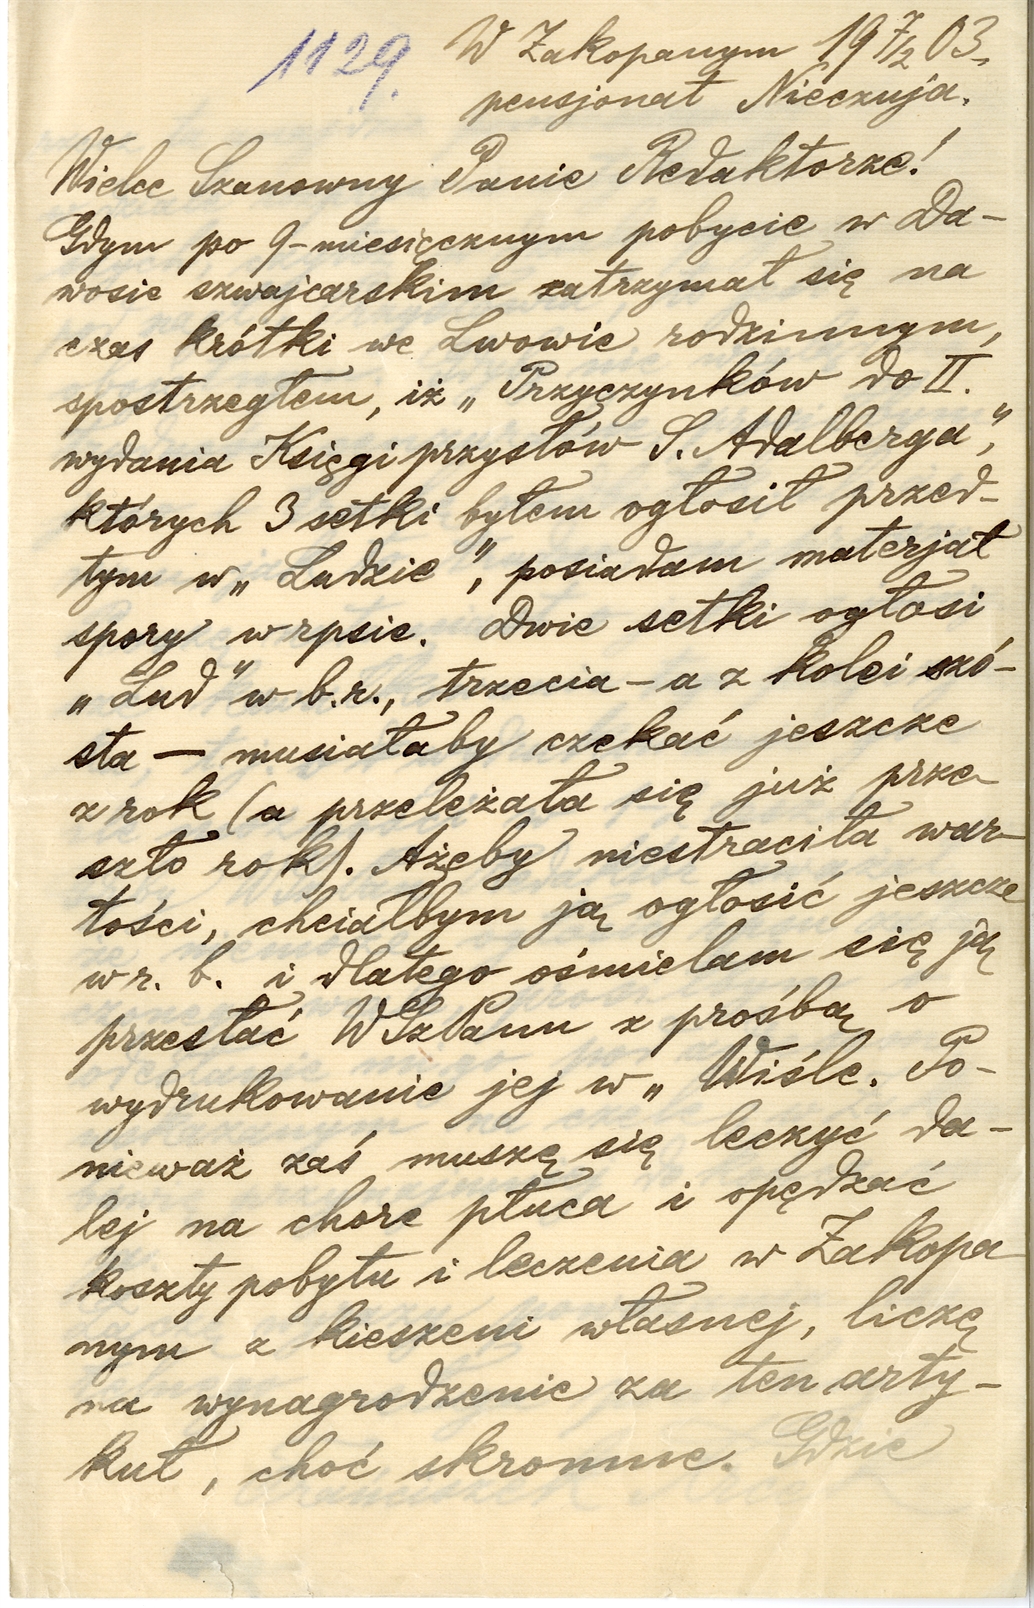 1129.
W Zakopanym 19 7/2 03.
pensjonat Nieczuja.
Wielce Szanowny Panie Redaktorze!
Gdym po 9-miesięcznym pobycie w Da-
wosie szwajcarskim zatrzymał się na
czas krótki we Lwowie rodzinnym,
spostrzegłem, iż „Przyczynków do II.
wydania Księgi przysłów S. Adalberga”,
których 3 setki byłem ogłosił przed-
tym w „Ludzie”, posiadam materjał
spory w rpsie. Dwie setki ogłosi
„Lud” w b.r., trzecia – a z kolei szó-
sta — musiałaby czekać jeszcze
z rok (a przeleżała się już prze-
szło rok). Ażeby niestraciła war-
tości, chciałbym ją ogłosić jeszcze
w r. b. i dlatego ośmielam się ją
przesłać WSzPanu z prośbą o
wydrukowanie jej w „Wiśle. Po-
nieważ zaś muszę się leczyć da-
lej na chore płuca i opędzać
koszty pobytu i leczenia w Zakopa-
nym z kieszeni własnej, liczę
na wynagrodzenie za ten arty-
kuł, choć skromne. Gdzie